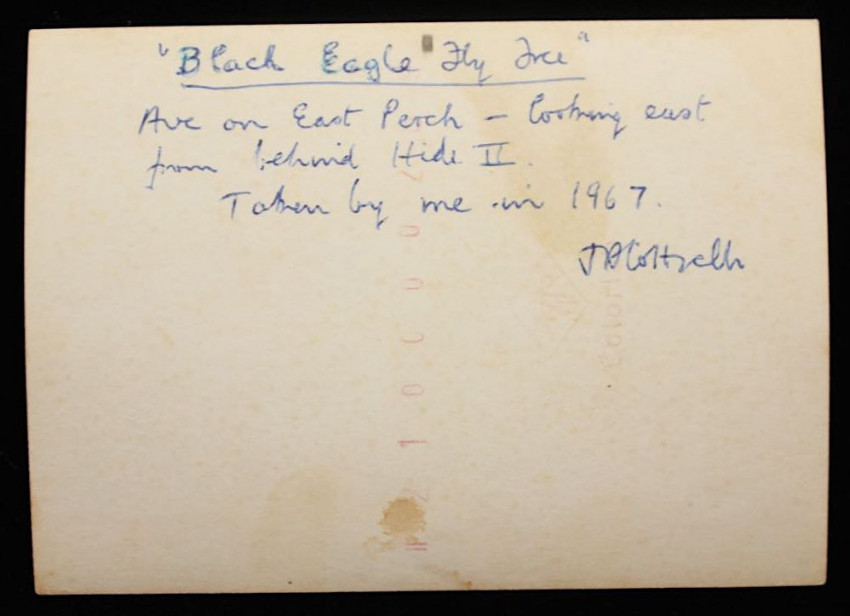 "Black Eagle Fly Free"
Ave on East Perch - looking east
from behind Hide II.
Taken by me in 1967.
J A Cottrell